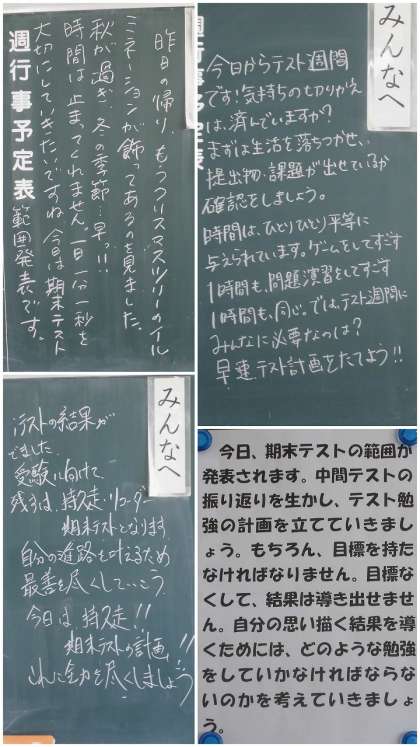 昨日の帰り、もうクリスマスツリーのイル
ミネーションが飾ってあるのを見ました。
秋が過ぎ、冬の季節…早っ!!
時間は止まってくれません。一日一分一秒を
大切にしていきたいですね。今日は期末テスト
範囲発表です。
週行事予定表
みんなへ
週行事予定表
今日からテスト週間
です!気持ちの切りかえ
は、済んでいますか?
まずは生活を落ちつかせ、
提出物・課題が出せているか
確認をしましょう。
時間は、ひとりひとり平等に
与えられています。ゲームをしてすごす
1時間も、問題演習をしてすごす
1時間も、同じ。では、テスト週間に
みんなに必要なのは?
早速、テスト計画をたてよう!!
みんなへ
テストの結果が
でました。
受験に向けて、
残るは、持久走・リコーダー
期末テストとなります
自分の進路を叶えるため
最善を尽くしていこう
今日は、持久走!!
期末テストの計画!!
これに全力を尽くしましょう
今日、期末テストの範囲が
発表されます。中間テストの
振り返りを生かし、テスト勉
強の計画を立てていきまし
ょう。もちろん、目標を持た
なければなりません。目標な
くして、結果は導き出せませ
ん。自分の思い描く結果を導
くためには、どのような勉強
をしていかなければならな
いのかを考えていきましょ
う。